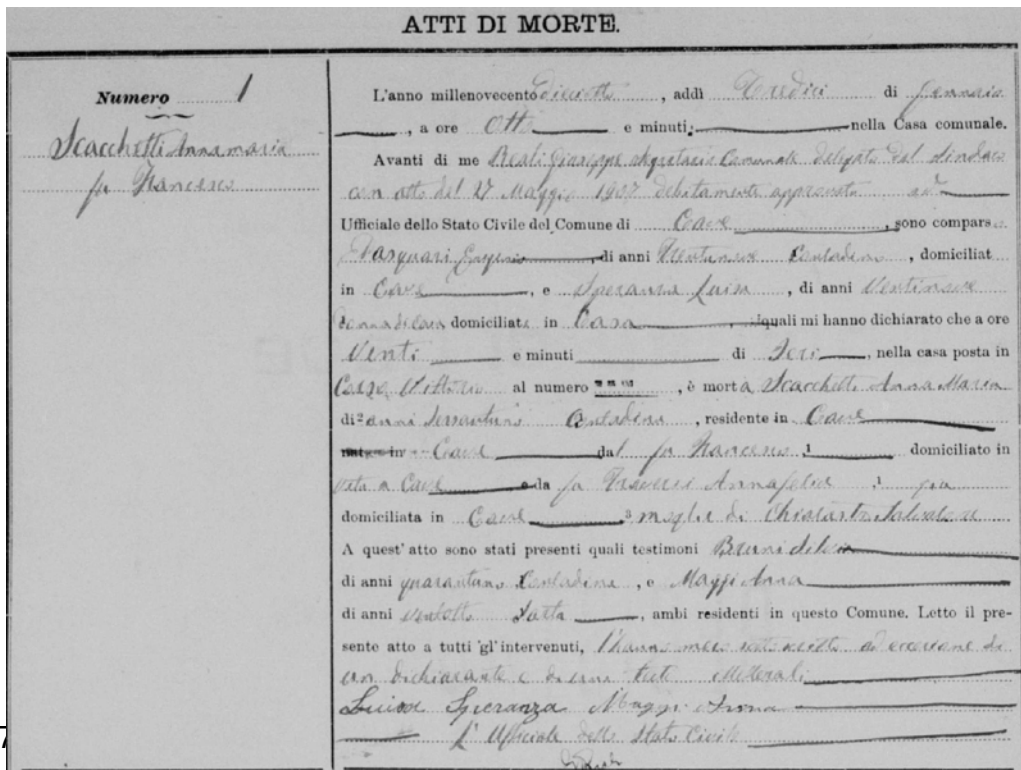 ATTI DI MORTE.
Numero 1
Scacchetti Annamaria
fu Francesco
L'anno millenovecento diciotto, addì Tredici di Gennaio
, a ore Otto e minuti nella Casa comunale.
Avanti di me Reali Giuseppe Segretario Comunale delegato dal Sindaco
con atto del 27 Maggio 1907 debitamente approvato
Ufficiale dello Stato Civile del Comune di Cave, sono compars
Pasquazi Eugenio, di anni Contadino, domiciliat
in Cave, e Speranza Luisa, di anni Ventinove
domiciliate in Casa, quali mi hanno dichiarato che a ore
Venti e minuti di Ieri, nella casa posta in
al numero, è morta Scacchetti Anna Maria
di anni Sessantuno Contadina, residente in Cave
nata in Cave dal fu Francesco, domiciliato in
vita a Cave e da fu Annafelice, già
domiciliata in Cave moglie di Salvatore
A quest'atto sono stati presenti quali testimoni Bruni
di anni quarantuno Contadina, e Maggi Anna
di anni ventotto Sarta, ambi residenti in questo Comune. Letto il pre-
sente atto a tutti gl'intervenuti, l'hanno meco sottoscritto ad eccezione di
un dichiarante e di un teste illetterati
Luisa Speranza Maggi Anna
L'Ufficiale dello Stato Civile
7